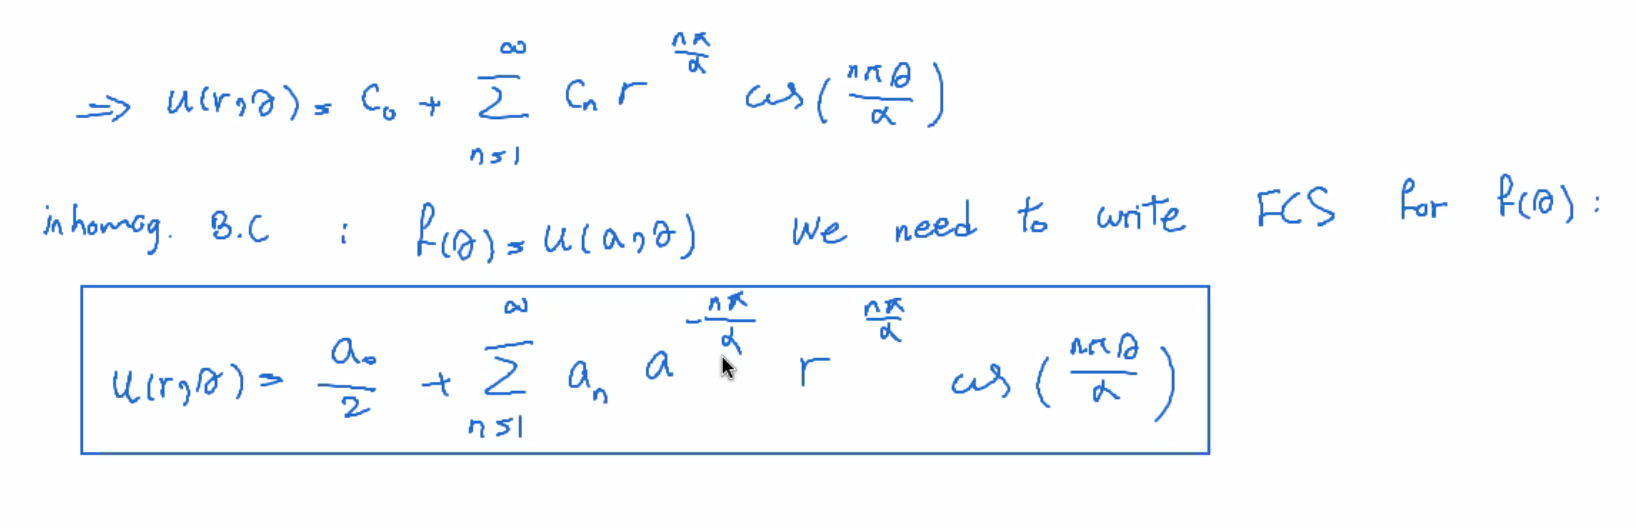 ⇒ u(r,θ) = C₀ + ∑_{n=1}^{∞} Cₙ r^{nπ/α} cos(nπθ/α)
inhomog. B.C : f(θ) = u(a,θ) We need to write FCS for f(θ) :
u(r,θ) = a₀/2 + ∑_{n=1}^{∞} aₙ a^{-nπ/α} r^{nπ/α} cos(nπθ/α)